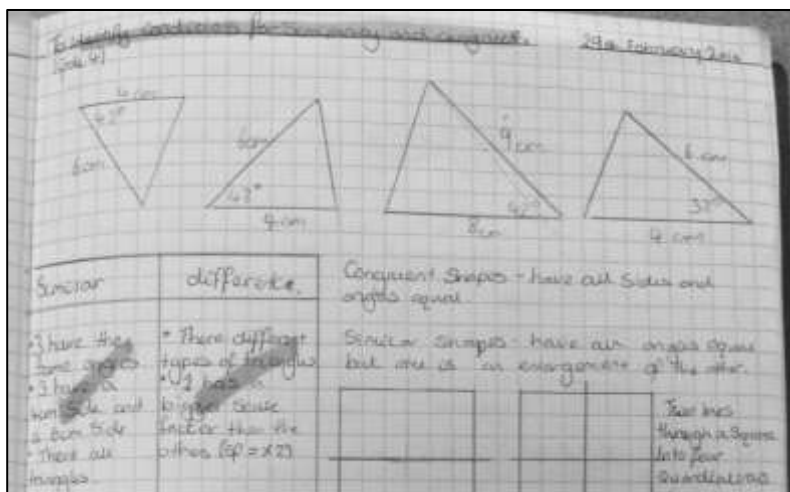 To identify conditions for similarity and congruent.
29th February
4 cm
42°
6cm
6cm
43°
4 cm
9 cm
42°
8cm
6 cm
38°
4 cm
Similar
difference.
• 3 have the
same angles
• 3 have a
4cm Side and
a 6cm Side
• There all
triangles
• There different
types of triangles
• 1 has a
bigger Scale
factor than the
others (SF = x2)
Congruent Shapes - have all Sides and
angles equal
Similar shapes - have all angles equal
but one is an enlargement of the other.
Two lines
through a square
Into four
quadrilaterals